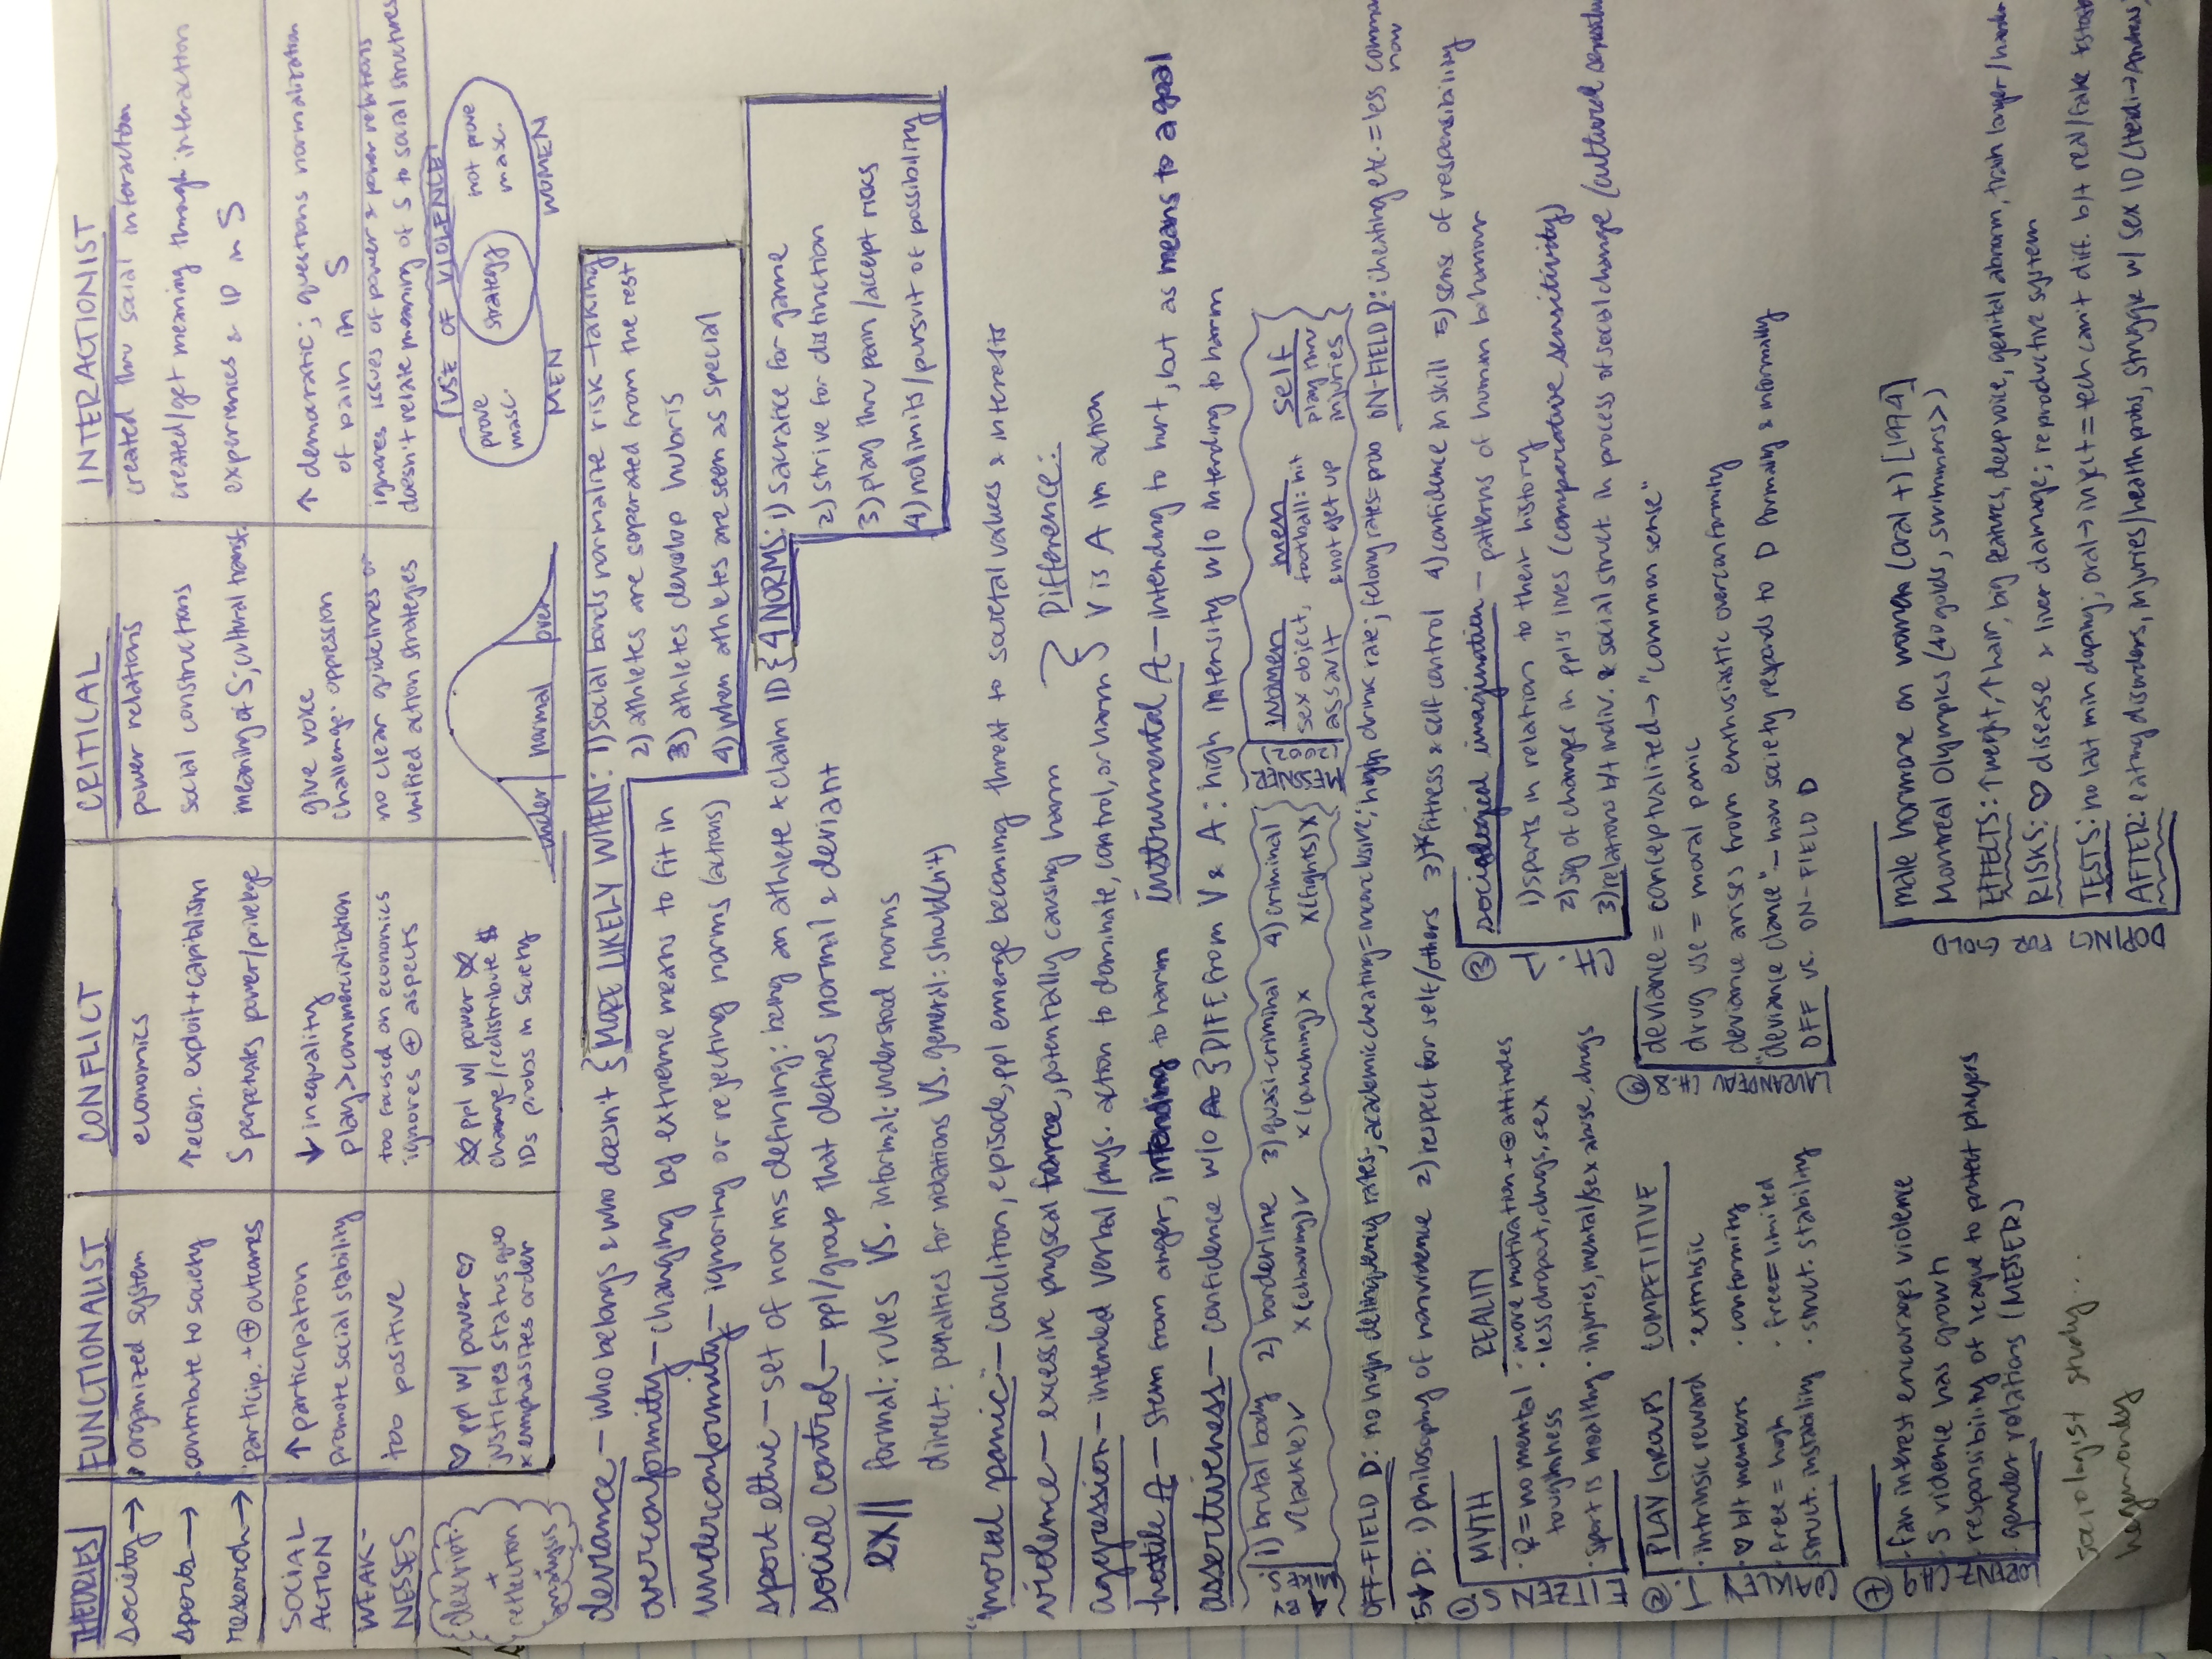 THEORIES FUNCTIONALIST CONFLICT CRITICAL INTERACTIONIST
society→ organized system economics power relations created thru social interaction
sports→ contribute to society ↑ econ. exploit + capitalism social constructions created/get meaning through interaction
research→ particip. → ⊕ outcomes S perpetuates power/privilege meaning of S; cultural transf. experiences & ID in S
SOCIAL ACTION ↑ participation ↓ inequality give voice ↑ democratic; questions normalization
promote social stability play > commercialization challenge oppression of pain in S
WEAK-NESSES too positive too focused on economics no clear guidelines or ignores issues of power & power relations
ignores ⊕ aspects unified action strategies doesn't relate meaning of S to social structures
descript. + reflection analysis
♡ ppl w/ power ♡
justifies status quo
& emphasizes order
ppl w/ power
change/redistribute $
IDs probs in society
under normal over
USE OF VIOLENCE
prove masc. strategy not prove masc.
MEN WOMEN
deviance — who belongs & who doesn't {MORE LIKELY WHEN: 1) social bonds normalize risk-taking
overconformity — changing by extreme means to fit in 2) athletes are seperated from the rest
underconformity — ignoring or rejecting norms (actions) 3) athletes develop hubris
4) when athletes are seen as special
sport ethic — set of norms defining: being an athlete & claim ID {4 NORMS: 1) sacrifice for game
social control — ppl/group that defines normal & deviant 2) strive for distinction
3) play thru pain/accept risks
4) no limits/pursuit of possibility
ex|| formal: rules VS. informal: understood norms
direct: penalties for violations VS. general: should(nt)
"moral panic" — condition, episode, ppl emerge becoming threat to societal values & interests
violence — excessive physical force, potentially causing harm } Difference:
aggression — intended verbal/phys. action to dominate, control, or harm } V is A in action
hostile A — stem from anger, intending to harm instrumental A — intending to hurt, but as means to a goal
assertiveness — confidence w/o A } DIFF. from V & A: high intensity w/o intending to harm
1) brutal body 2) borderline 3) quasi-criminal 4) criminal
✓(tackle)✓ x(elbowing)✓ x(punching)x x(fights)x
women men self
sex object, football: hit play thru
assault & not get up injuries
OFF-FIELD D: no high delinquency rates, academic cheating = more likely, high drink rate; felony rates = prob ON-FIELD D: cheating etc. = less common now
5↓ D: 1) philosophy of nonviolence 2) respect for self/others 3)* fitness & self control 4) confidence in skill 5) sense of responsibility
① MYTH REALITY
· ♀ = no mental toughness · more motivation + ⊕ attitudes
· less dropout, drugs, sex
· sport is healthy · injuries, mental/sex abuse, drugs
③ sociological imagination — patterns of human behaviour
1) sports in relation to their history
2) sig of changes in ppl's lives (comparative sensitivity)
3) relations b/t indiv. & social struct. in process of social change
② PLAY GROUPS COMPETITIVE
· intrinsic reward · extrinsic
· ♡ b/t members · conforming
· free = high · free = limited
· struct. instability · struct. stability
⑥ LAURANDEAU CH. 8
deviance = conceptualized → "common sense"
drug use = moral panic
deviance arises from enthusiastic overconformity
"deviance dance" — how society responds to D formally & informally
OFF VS. ON-FIELD D
⑦
· fan interest encourages violence
· S violence has grown
· responsibility of league to protect players
· gender relations (MESSER)
DOPING FOR GOLD
male hormone on women (oral +) [1974]
Montreal Olympics (40 golds, swimmers>>)
EFFECTS: ↑ weight, ↑ hair, big features, deep voice, genital abnorm, train longer/harder
RISKS: ♡ disease & liver damage; reproductive system
TESTS: no last min doping; oral → inject = tech can't diff. b/t real/fake testost.
AFTER: eating disorders, injuries/health probs, struggle w/ sex ID (Heidi → Andreas)
sociologist study...
hegemony